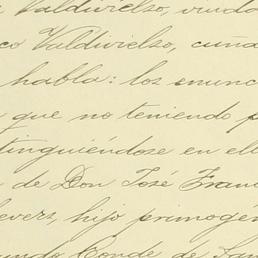 Valdivielso, viuda
co Valdivielso, cuña
habla: los enunc
que no teniendo p
tinguiéndose en ell
de Don José Franc
levers, hijo primogén
undo Conde de San